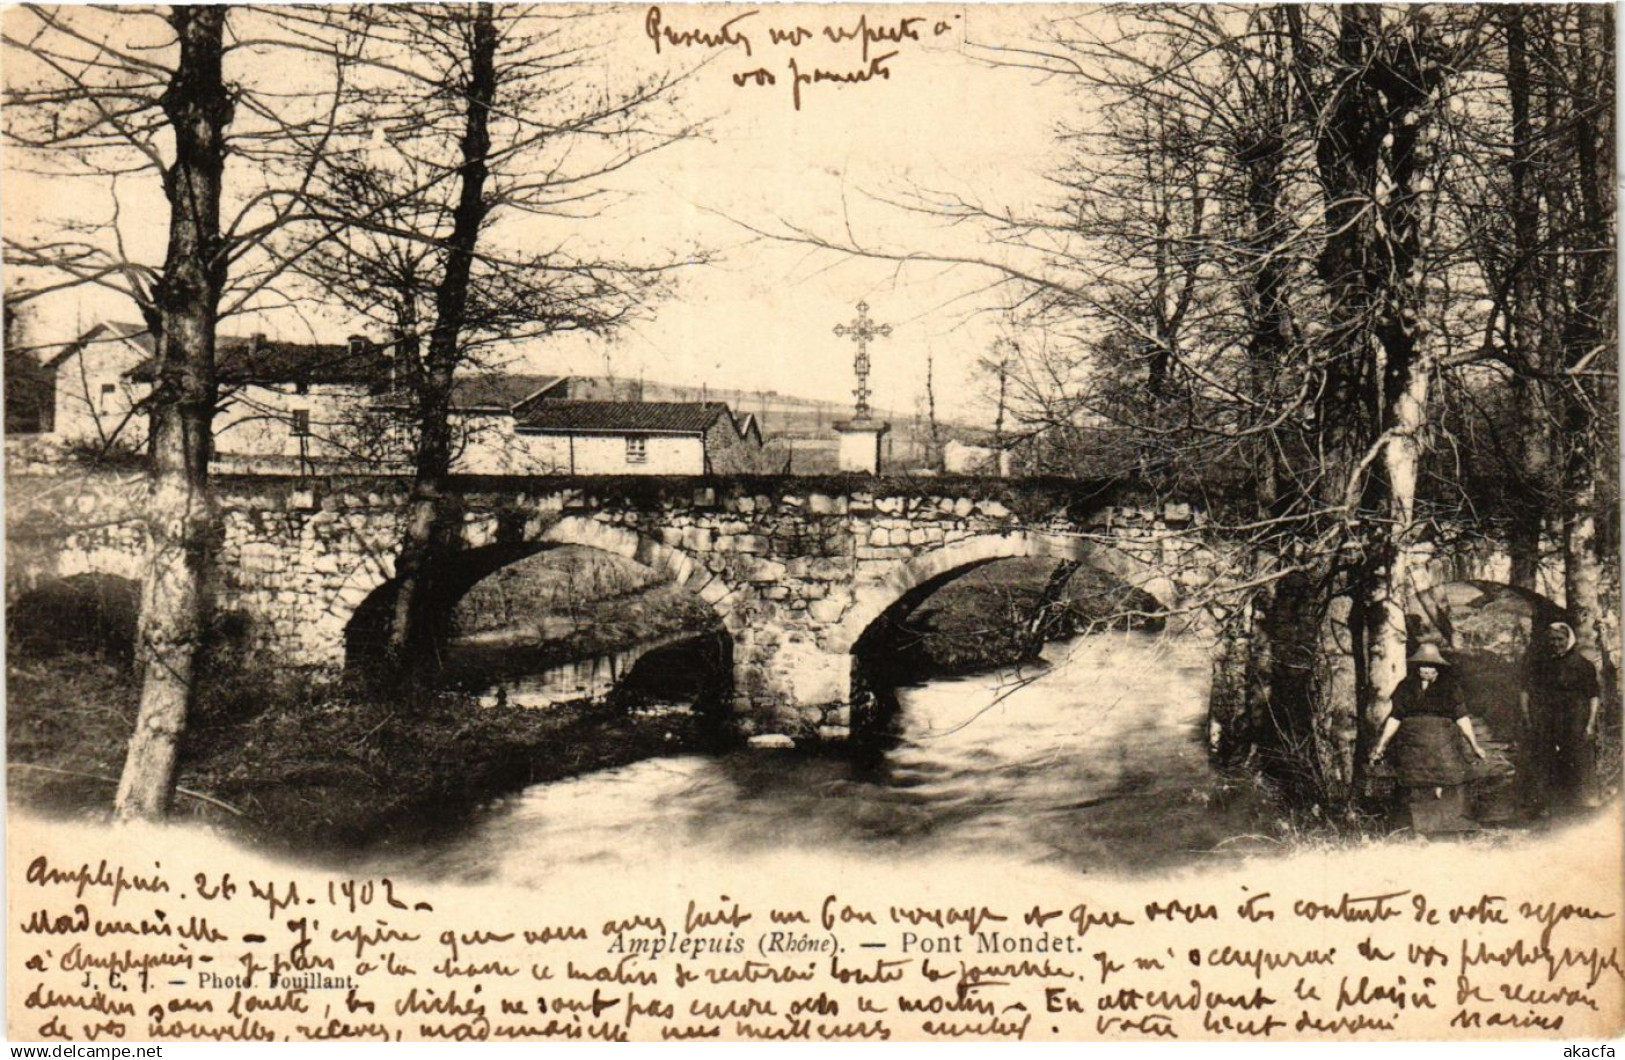 Présentez nos respects à
vos parents
Amplepuis. 26 sept. 1902 -
Mademoiselle - J'espère que vous avez fait un bon voyage et que vous êtes contente de votre séjour
Amplepuis (Rhône). — Pont Mondet.
à Amplepuis - Je pars à la chasse ce matin je resterai toute la journée. Je m'occuperai de vos photographies
J. C. J. — Photo. Fouillant.
demain sans faute, les clichés ne sont pas encore secs ce matin - En attendant le plaisir de recevoir
de vos nouvelles, recevez, mademoiselle mes meilleures amitiés. Votre tout dévoué Marius
akacfa
akacfa